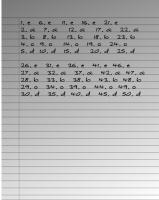 1, e 6, e 11, e 16, e 21, e
2, a 7, a 12, a 17, a 22, a
3, b 8, b 13, b 18, b 23, b
4, o 9, o 14, o 19, o 24, o
5, d 10, d 15, d 20, d 25, d
26, e 31, e 36, e 41, e 46, e
27, a 32, a 37, a 42, a 47, a
28, b 33, b 38, b 43, b 48, b
29, o 34, o 39, o 44, o 49, o
30, d 35, d 40, d 45, d 50, d